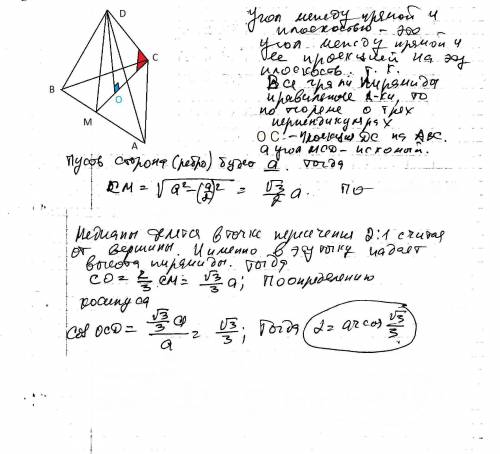 D
C
B
O
M
A
угол между прямой и
плоскостью - это
угол между прямой и
ее проекцией на эту
плоскость. Т.к.
Все грани пирамида
правильные Δ-ки, то
по теореме о трех
перпендикулярах
OC - проекция DC на ABC.
а угол MCD - искомый.
Пусть сторона (ребро) будет a. Тогда
CM = √(a² - (a/2)²) = √3/2 a. По
Медианы делятся в точке пересечения 2:1 считая
от вершины. И именно в эту точку падает
высота пирамиды. Тогда
CO = 2/3 CM = √3/3 a; По определению
косинуса
cos OCD = (√3/3 a)/a = √3/3; Тогда α = arccos √3/3